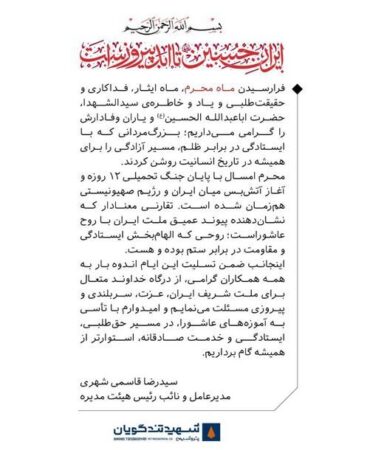 بسم الله الرحمن الرحیم
ایران حسین تا ابد پیروز است
فرارسیدن ماه محرم، ماه ایثار، فداکاری و
حقیقت‌طلبی و یاد و خاطره‌ی سیدالشهدا،
حضرت اباعبدالله الحسین(ع) و یاران وفادارش
را گرامی می‌داریم؛ بزرگ‌مردانی که با
ایستادگی در برابر ظلم، مسیر آزادگی را برای
همیشه در تاریخ انسانیت روشن کردند.
محرم امسال با پایان جنگ تحمیلی ۱۲ روزه و
آغاز آتش‌بس میان ایران و رژیم صهیونیستی
هم‌زمان شده است. تقارنی معنادار که
نشان‌دهنده پیوند عمیق ملت ایران با روح
عاشوراست؛ روحی که الهام‌بخش ایستادگی
و مقاومت در برابر ستم بوده و هست.
اینجانب ضمن تسلیت این ایام اندوه بار به
همه همکاران گرامی، از درگاه خداوند متعال
برای ملت شریف ایران، عزت، سربلندی و
پیروزی مسئلت می‌نمایم و امیدوارم با تأسی
به آموزه‌های عاشورا، در مسیر حق‌طلبی،
ایستادگی و خدمت صادقانه، استوارتر از
همیشه گام برداریم.
سیدرضا قاسمی شهری
مدیرعامل و نائب رئیس هیئت مدیره
شهید تندگویان
پتروشیمی